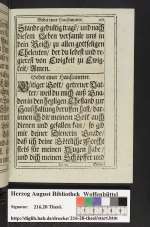 Gebet einer Haußmutter.
Stunde geduldig trag/ und nach
diesem Leben versamle uns in
dein Reich/ zu allen gottseligen
Eheleuten/ der du lebest und re-
gierest von Ewigkeit zu Ewig-
keit/ Amen.
Gebet einer Haußmutter.
Gütiger Gott/ getreuer Va-
ter/ weil du mich auß Gna-
den in den heyligen Ehestand zur
Haußhaltung beruffen hast/ dar-
innen ich dir meinem Gott auch
dienen und gefallen kan/ so gib
mir deiner Dienerin Gnade/
daß ich deine Göttliche Forcht
stets für meinen Augen habe/
und dich meinen Schöpffer und
Herzog August Bibliothek Wolfenbüttel
Signatur: 216.28 Theol.
http://diglib.hab.de/drucke/216-28-theol/start.htm